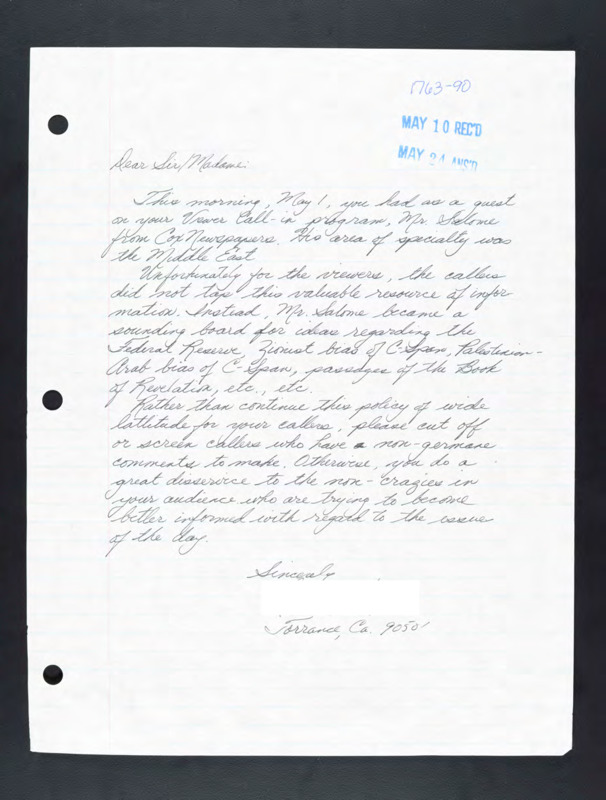 1763-90
MAY 10 REC'D
MAY 24 ANS'D
Dear Sir/Madame:
This morning, May 1, you had as a guest
on your Viewer Call-in program, Mr. Salome
from Cox Newspapers. His area of specialty was
the Middle East
Unfortunately for the viewers, the callers
did not tap this valuable resource of infor
mation. Instead, Mr. Salome became a
sounding board for ideas regarding the
Federal Reserve, Zionist bias of C-Span, Palestinian-
Arab bias of C-Span, passages of the Book
of Revelation, etc., etc.
Rather than continue this policy of wide
lattitude for your callers, please cut off
or screen callers who have a non-germane
comments to make. Otherwise, you do a
great disservice to the non-crazies in
your audience who are trying to become
better informed with regard to the issue
of the day.
Sincerely
Torrance, Ca. 90501